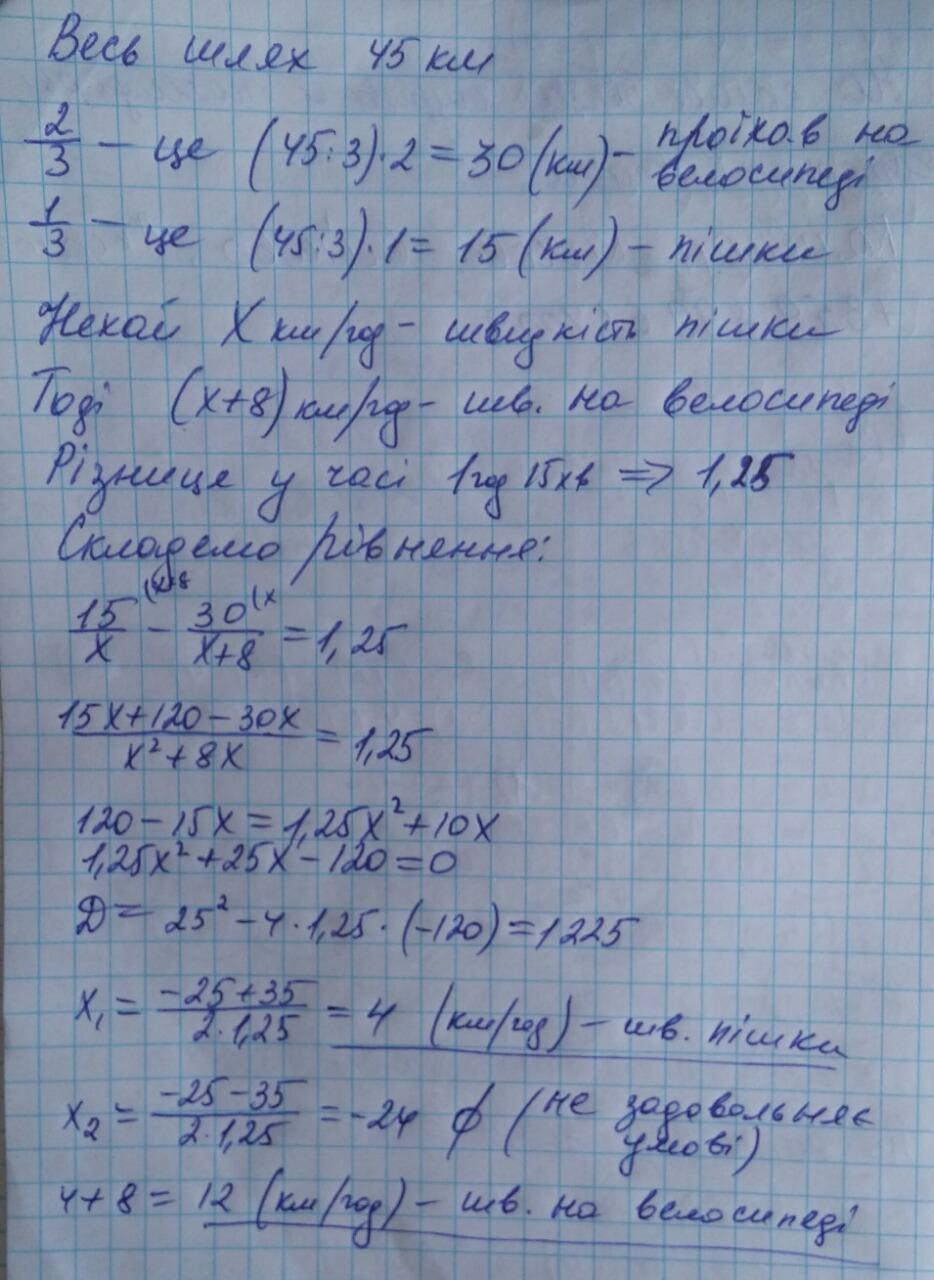 Весь шлях 45 км
2/3 — це (45:3)·2 = 30 (км) – проїхав на велосипеді
1/3 — це (45:3)·1 = 15 (км) – пішки
Нехай X км/год – швидкість пішки
Тоді (x+8) км/год – шв. на велосипеді
Різнице у часі 1год 15хв => 1,25
Складемо рівнення:
15/x (x+8 − 30/x+8 (x = 1,25
15x+120−30x / x²+8x = 1,25
120−15x = 1,25x²+10x
1,25x²+25x−120=0
D = 25²−4·1,25·(−120)=1225
x₁ = −25+35 / 2·1,25 = 4 (км/год) – шв. пішки
x₂ = −25−35 / 2·1,25 = −24 ∅ (не задовольняє умові)
4+8 = 12 (км/год) – шв. на велосипеді